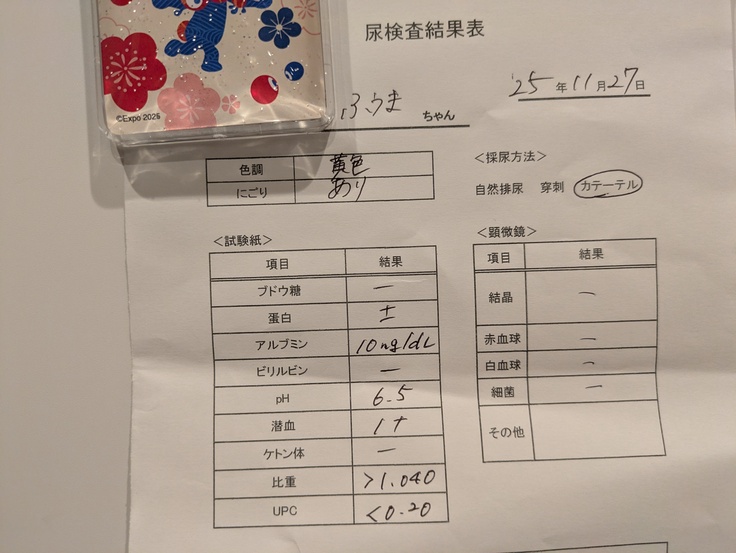 尿検査結果表
©Expo 2025
ふうま ちゃん
'25年11月27日
色調 黄色
にごり あり
<採尿方法>
自然排尿 穿刺 カテーテル
<試験紙>
項目 結果
ブドウ糖 ー
蛋白 ±
アルブミン 10mg/dL
ビリルビン ー
pH 6.5
潜血 1+
ケトン体 ー
比重 >1.040
UPC <0.20
<顕微鏡>
項目 結果
結晶 ー
赤血球 ー
白血球 ー
細菌 ー
その他